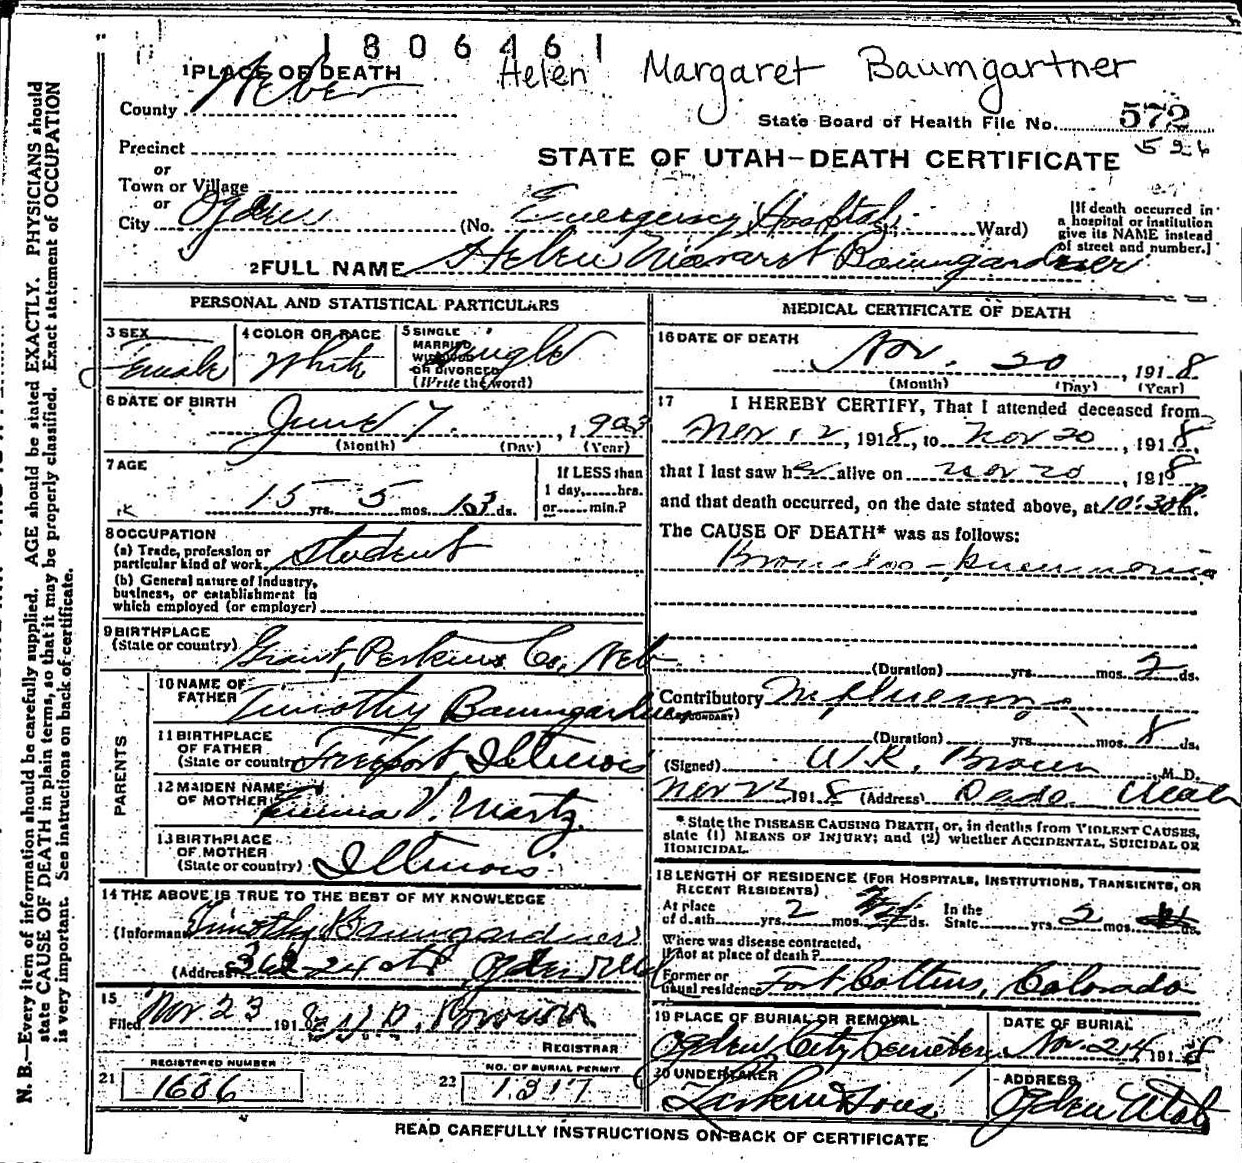 1806461
Helen Margaret Baumgartner
1 PLACE OF DEATH
County Weber
State Board of Health File No. 572
526
Precinct
or
Town or Village
or
City Ogden
STATE OF UTAH—DEATH CERTIFICATE
(No. Emergency Hospital St.; Ward)
[If death occurred in a hospital or institution give its NAME instead of street and number.]
2 FULL NAME Helen Margaret Baumgardner
PERSONAL AND STATISTICAL PARTICULARS
3 SEX Female
4 COLOR OR RACE White
5 SINGLE MARRIED, WIDOWED OR DIVORCED (Write the word) Single
6 DATE OF BIRTH June 7, 1903
(Month) (Day) (Year)
7 AGE
15 yrs. 5 mos. 13 ds.
If LESS than 1 day, hrs. or min.?
8 OCCUPATION
(a) Trade, profession or particular kind of work Student
(b) General nature of Industry, business, or establishment in which employed (or employer)
9 BIRTHPLACE (State or country) Grant, Perkins Co, Neb
PARENTS
10 NAME OF FATHER Timothy Baumgardner
11 BIRTHPLACE OF FATHER (State or country) Freeport, Illinois
12 MAIDEN NAME OF MOTHER Emma V. Martz
13 BIRTHPLACE OF MOTHER (State or country) Illinois
14 THE ABOVE IS TRUE TO THE BEST OF MY KNOWLEDGE
(Informant) Timothy Baumgardner
(Address) 24 St Ogden Utah
15
Filed Nov. 23 1918
REGISTRAR
REGISTERED NUMBER
21 1686
NO. OF BURIAL PERMIT
22 1317
MEDICAL CERTIFICATE OF DEATH
16 DATE OF DEATH
Nov. 20, 1918
(Month) (Day) (Year)
17 I HEREBY CERTIFY, That I attended deceased from
Nov 12, 1918, to Nov 20, 1918,
that I last saw her alive on Nov 20, 1918
and that death occurred, on the date stated above, at 10:30 P m.
The CAUSE OF DEATH* was as follows:
Broncho-pneumonia
(Duration) yrs. mos. 2 ds.
Contributory Influenza
(SECONDARY)
(Duration) yrs. mos. 8 ds.
(Signed) W.R. Brown, M. D.
Nov 23 1918 (Address) Utah
*State the DISEASE CAUSING DEATH, or, in deaths from VIOLENT CAUSES, state (1) MEANS OF INJURY; and (2) whether ACCIDENTAL, SUICIDAL OR HOMICIDAL.
18 LENGTH OF RESIDENCE (FOR HOSPITALS, INSTITUTIONS, TRANSIENTS, OR RECENT RESIDENTS)
At place of death yrs. 2 mos. ds. In the State yrs. 2
Where was disease contracted, if not at place of death?
Former or usual residence Fort Collins, Colorado
19 PLACE OF BURIAL OR REMOVAL Ogden City Cemetery
DATE OF BURIAL Nov. 24 1918
20 UNDERTAKER Larkin & Sons
ADDRESS Ogden Utah
READ CAREFULLY INSTRUCTIONS ON BACK OF CERTIFICATE
N. B.—Every item of information should be carefully supplied. AGE should be stated EXACTLY. PHYSICIANS should
state CAUSE OF DEATH in plain terms, so that it may be properly classified. Exact statement of OCCUPATION
is very important. See instructions on back of certificate.